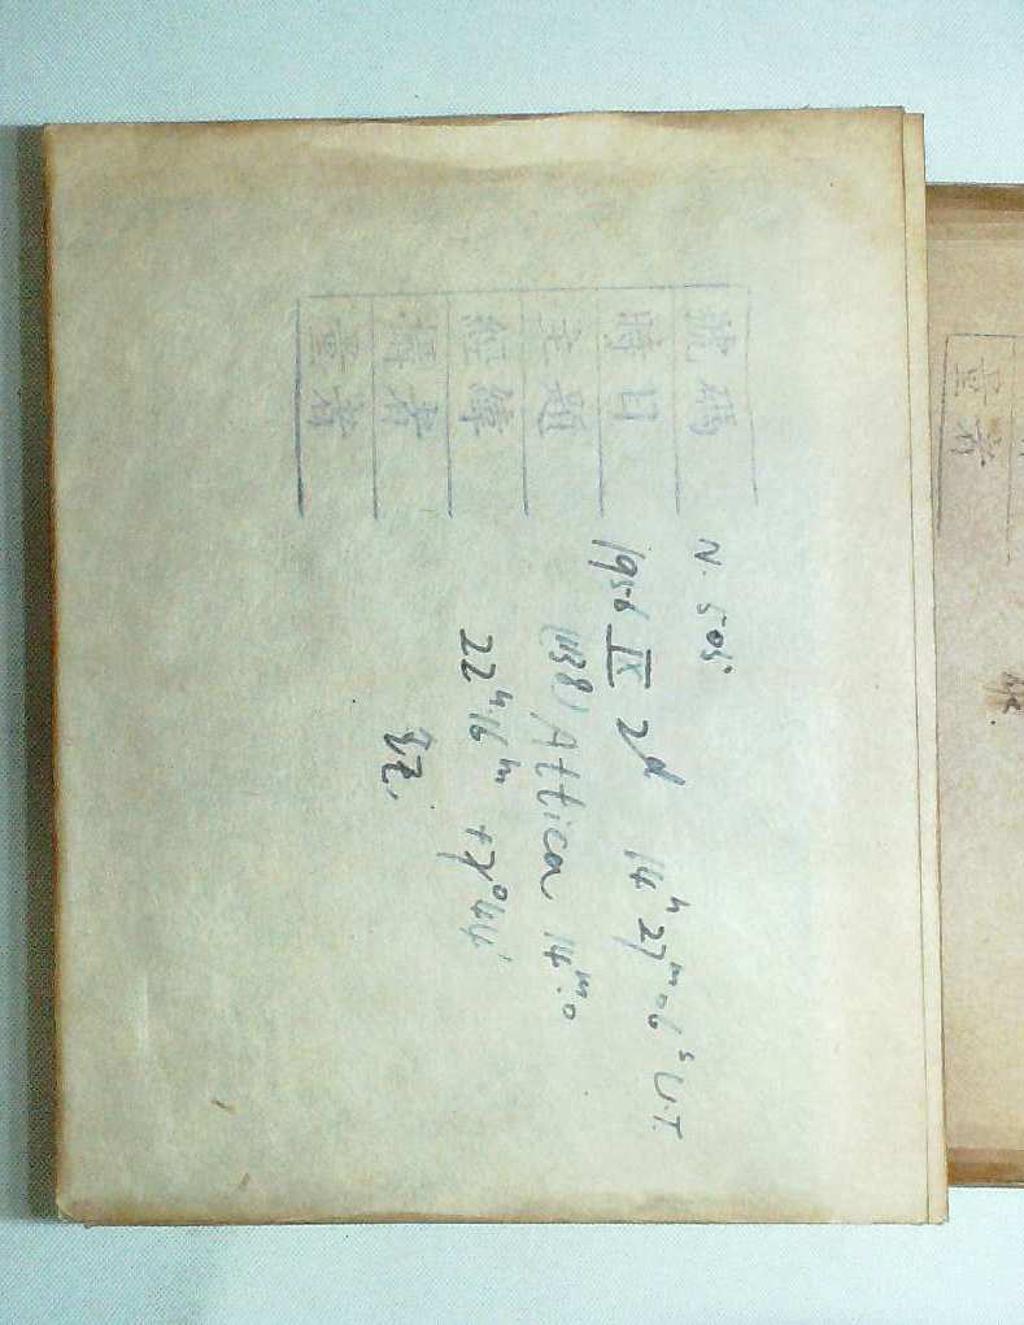 號碼 N. 505
時日 1956 IX 2d 14h 27m 06s U.T.
主題 (1138) Attica 14m.0
經緯 22h 16m +7°44'
攝者
量者
量者